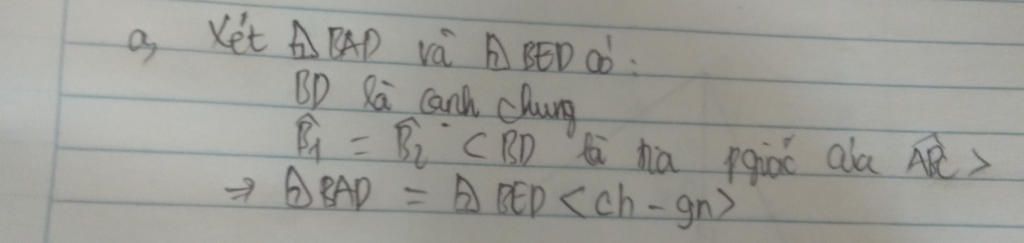 a, Xét ⊿BAD và ⊿BED có:
BD là cạnh chung
B̂1 = B̂2 <BD là tia pgiác của ABC>
⇒ ⊿BAD = ⊿BED <ch-gn>